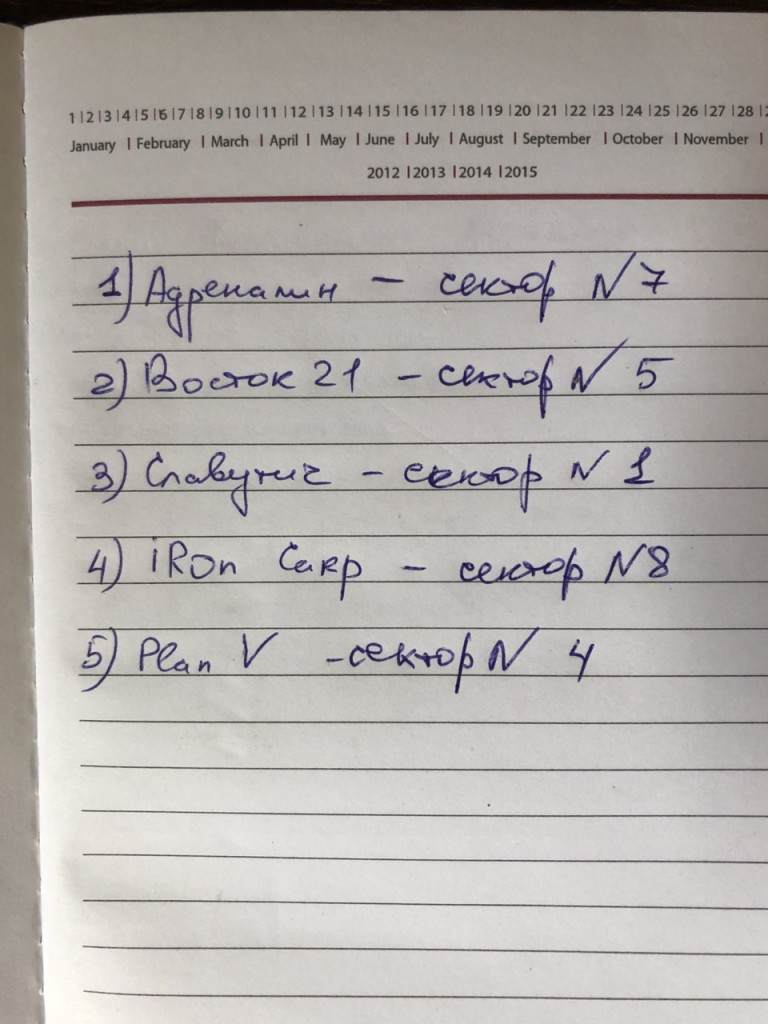 1|2|3|4|5|6|7|8|9|10|11|12|13|14|15|16|17|18|19|20|21|22|23|24|25|26|27|28|
January | February | March | April | May | June | July | August | September | October | November |
2012 |2013 |2014 |2015
1) Адреналин - сектор N 7
2) Восток 21 - сектор N 5
3) Славутич - сектор N 1
4) iRon Carp - сектор N8
5) Plan V -сектор N 4